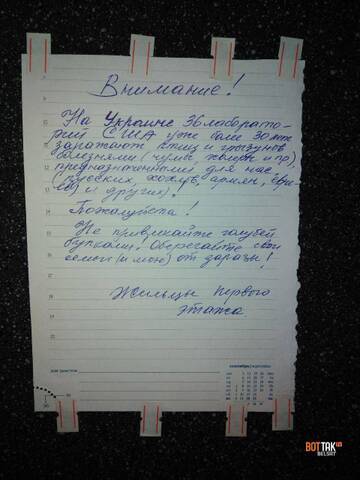 Внимание!
На Украине 36 лаборато-
рий США уже более 30 лет
заражают птиц и грызунов
болезнями (чумы, холеры и пр),
предназначенными для нас
(русских, хохлов, армян, евре-
ев) и других).
Пожалуйста!
Не привлекайте голубей
булками! Оберегайте свои
семьи (и мою) от заразы!
Жильцы первого
этажа
для заметок
сентябрь
BOT TAK
BELSAT